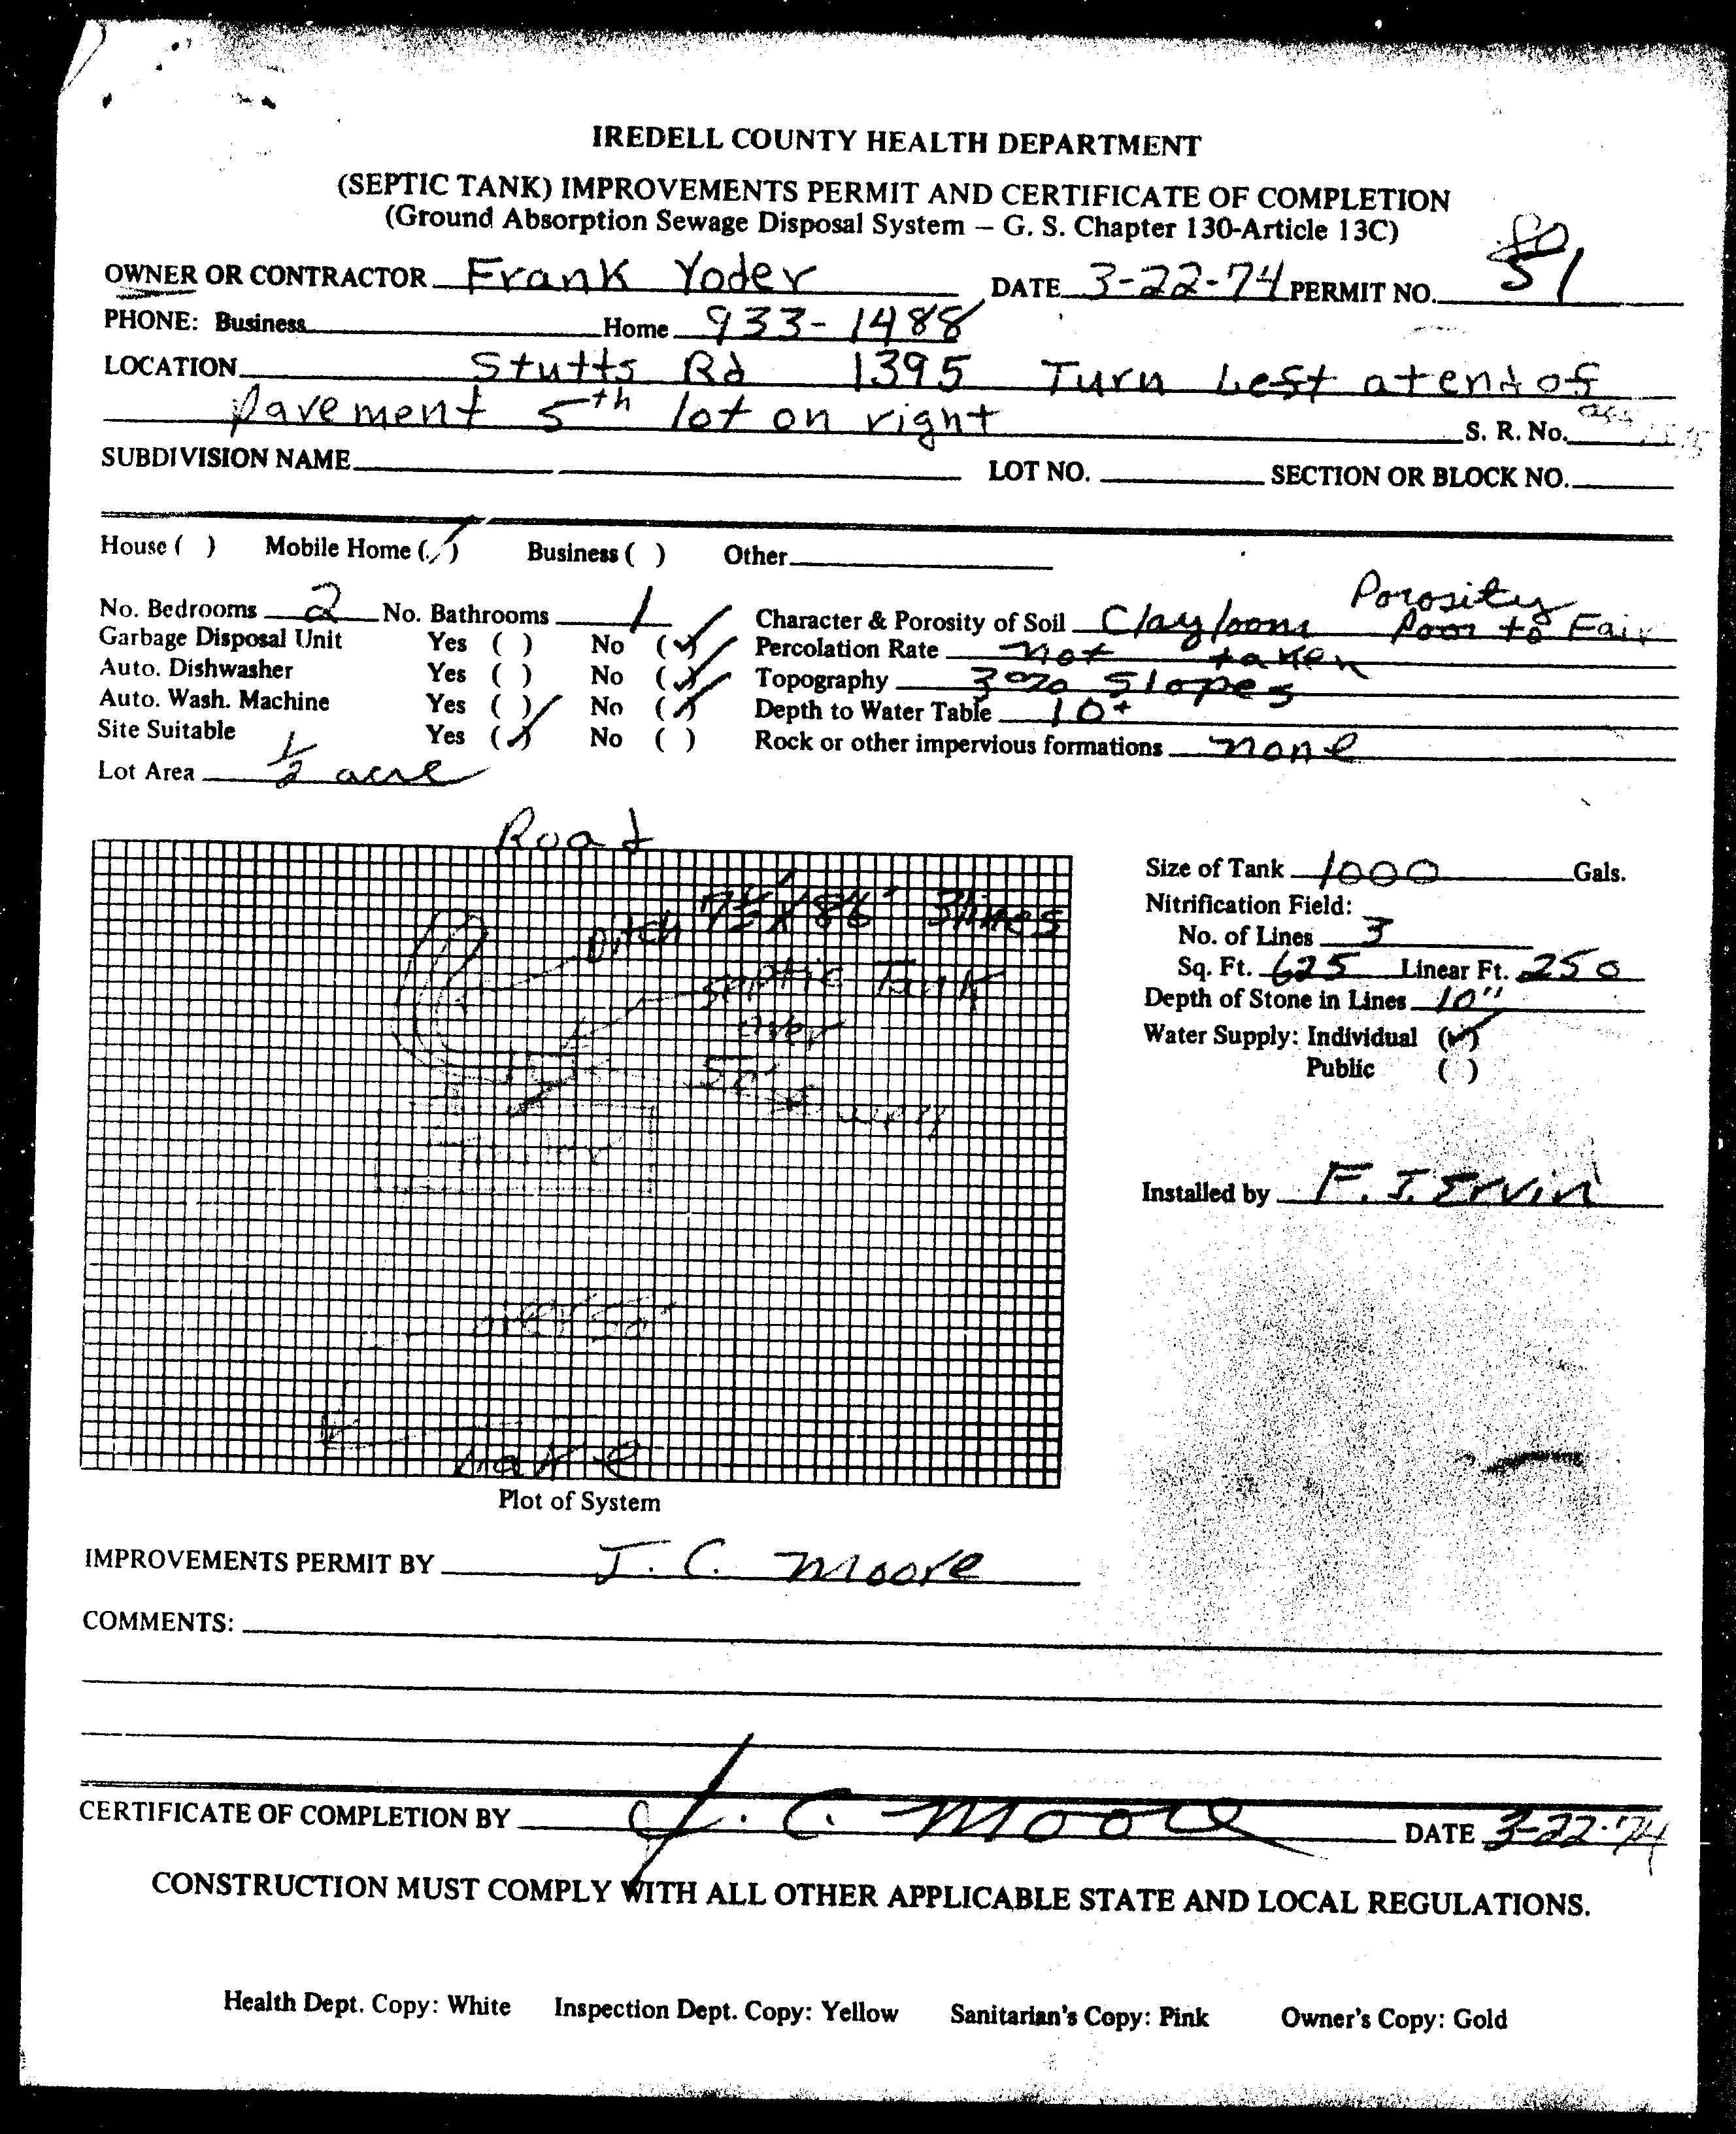 IREDELL COUNTY HEALTH DEPARTMENT
(SEPTIC TANK) IMPROVEMENTS PERMIT AND CERTIFICATE OF COMPLETION
(Ground Absorption Sewage Disposal System – G. S. Chapter 130-Article 13C)
OWNER OR CONTRACTOR Frank Yoder DATE 3-22-74 PERMIT NO. 51
PHONE: Business Home 933-1488
LOCATION Stutts Rd 1395 Turn Left at end of
Pavement 5th lot on right S. R. No.
SUBDIVISION NAME LOT NO. SECTION OR BLOCK NO.
House ( ) Mobile Home (✓) Business ( ) Other
Porosity
No. Bedrooms 2 No. Bathrooms 1 Character & Porosity of Soil Clay loam Poor to Fair
Garbage Disposal Unit Yes ( ) No (✓) Percolation Rate not taken
Auto. Dishwasher Yes ( ) No (✓) Topography 30% Slopes
Auto. Wash. Machine Yes ( ) No (✓) Depth to Water Table 10+
Site Suitable Yes (✓) No ( ) Rock or other impervious formations none
Lot Area 1/2 acre
Road
Ditch 86' 3 lines
Septic Tank
over
50'
well
Plot of System
Size of Tank 1000 Gals.
Nitrification Field:
No. of Lines 3
Sq. Ft. 625 Linear Ft. 250
Depth of Stone in Lines 10"
Water Supply: Individual (✓)
Public ( )
Installed by F. J. Ervin
IMPROVEMENTS PERMIT BY J. C. Moore
COMMENTS:
CERTIFICATE OF COMPLETION BY J. C. Moore DATE 3-22-74
CONSTRUCTION MUST COMPLY WITH ALL OTHER APPLICABLE STATE AND LOCAL REGULATIONS.
Health Dept. Copy: White Inspection Dept. Copy: Yellow Sanitarian's Copy: Pink Owner's Copy: Gold